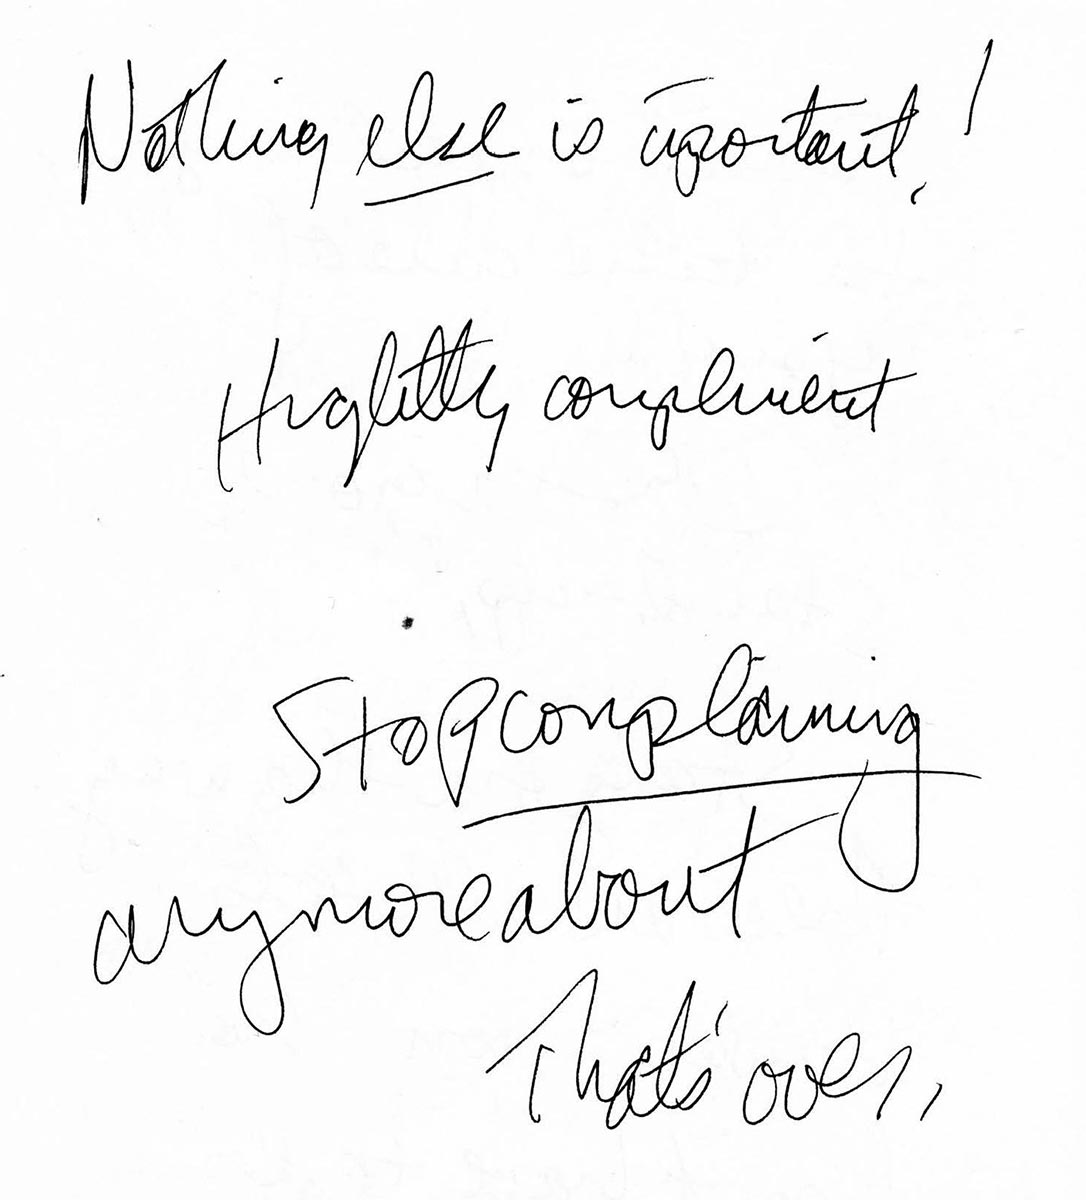 Nothing else is important!
compliment
Stop complaining
anymore about
That's over.